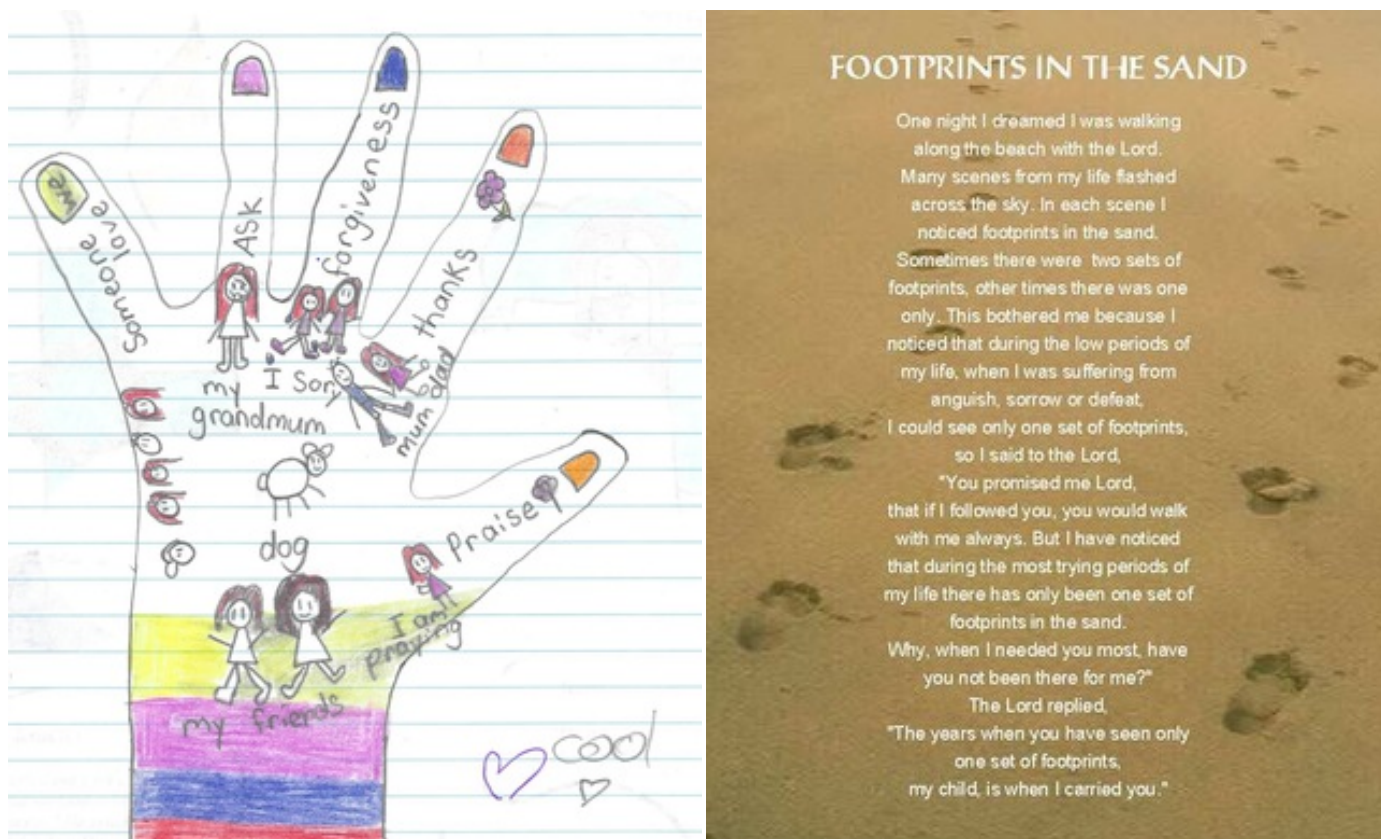 we
someone
love
ASK
forgiveness
thanks
Praise
my
grandmum
I Sory
mum dad
dog
I am
praying
my friends
cool
FOOTPRINTS IN THE SAND
One night I dreamed I was walking
along the beach with the Lord.
Many scenes from my life flashed
across the sky. In each scene I
noticed footprints in the sand.
Sometimes there were two sets of
footprints, other times there was one
only. This bothered me because I
noticed that during the low periods of
my life, when I was suffering from
anguish, sorrow or defeat,
I could see only one set of footprints,
so I said to the Lord,
"You promised me Lord,
that if I followed you, you would walk
with me always. But I have noticed
that during the most trying periods of
my life there has only been one set of
footprints in the sand.
Why, when I needed you most, have
you not been there for me?"
The Lord replied,
"The years when you have seen only
one set of footprints,
my child, is when I carried you."